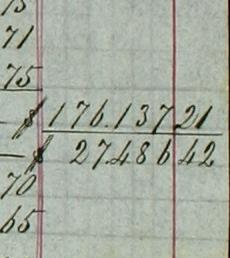 75
71
75
$ 176.137 21
$ 27486 42
70
65